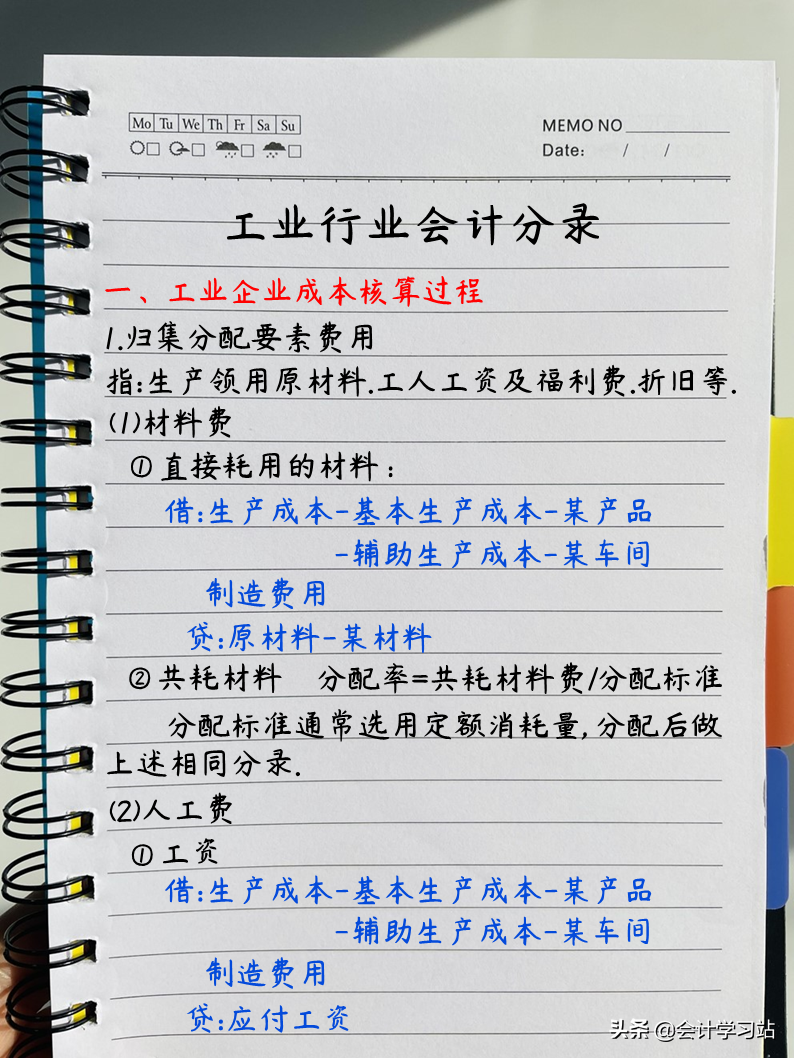 Mo Tu We Th Fr Sa Su
MEMO NO
Date: / /
工业行业会计分录
一、工业企业成本核算过程
1.归集分配要素费用
指:生产领用原材料.工人工资及福利费.折旧等.
(1)材料费
①直接耗用的材料:
借:生产成本-基本生产成本-某产品
-辅助生产成本-某车间
制造费用
贷:原材料-某材料
②共耗材料 分配率=共耗材料费/分配标准
分配标准通常选用定额消耗量,分配后做
上述相同分录.
(2)人工费
①工资
借:生产成本-基本生产成本-某产品
-辅助生产成本-某车间
制造费用
贷:应付工资
头条 @会计学习站